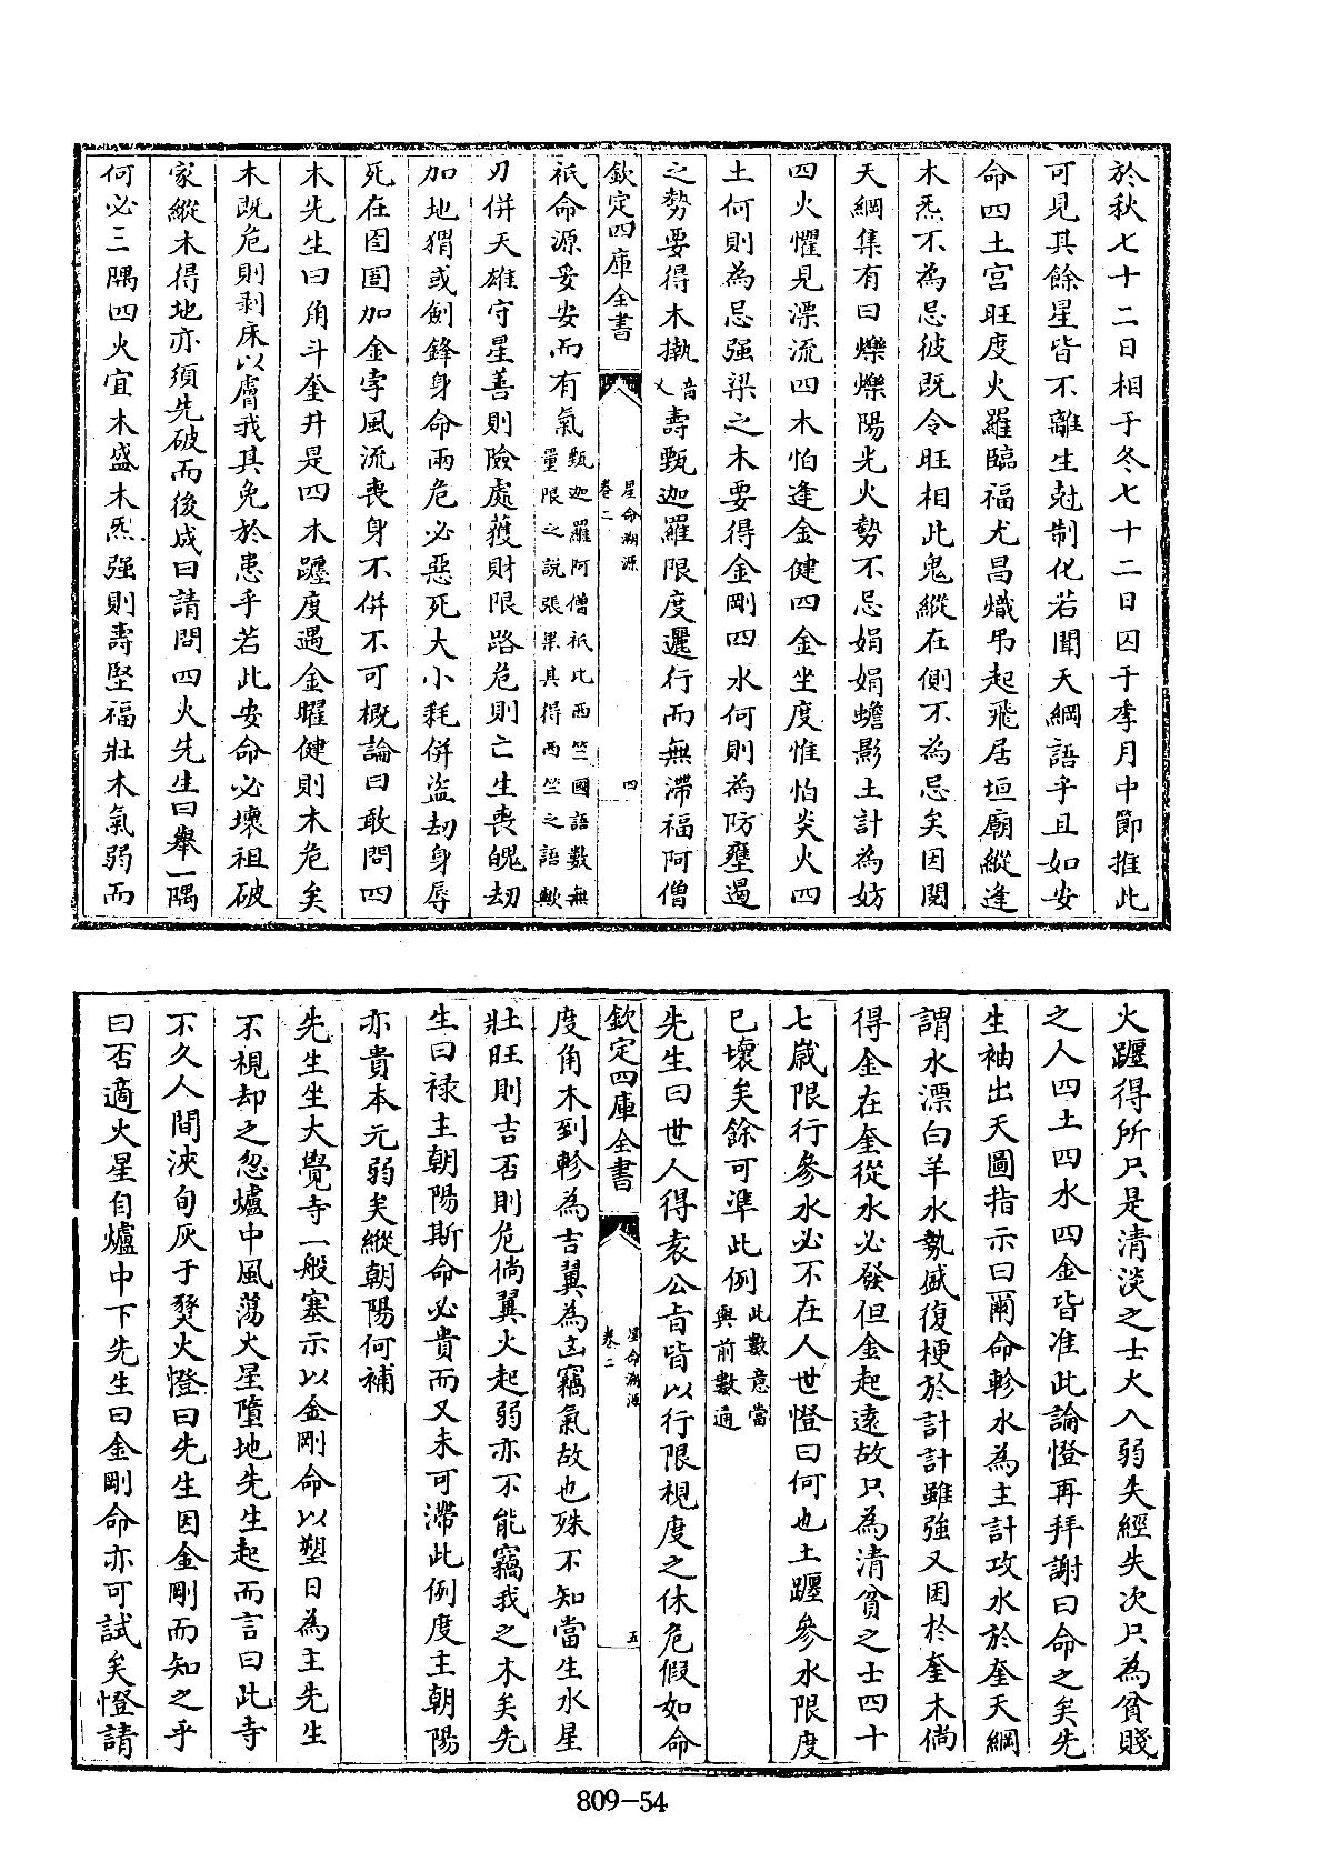 於秋七十二日相于冬七十二日囚于季月中節推此
可見其餘星皆不離生尅制化若聞天綱語乎且如安
命四土宮旺度火羅臨福尤昌熾弔起飛居垣廟縱逢
木炁不為忌彼既令旺相此鬼縱在側不為忌矣因閱
天綱集有曰爍爍陽光火勢不忌娟娟蟾影土計為妨
四火懼見漂流四木怕逢金健四金坐度惟怕炎火四
土何則為忌强梁之木要得金剛四水何則為防壅遏
之勢要得木橓音乂壽甄迦羅限度邐行而無滯福阿僧
欽定四庫全書
星命溯源
卷二
四
祇命源妥安而有氣甄迦羅阿僧祇此西竺國語數無量限之說張果其得西竺之語歟
刃併天雄守星善則險處獲財限路危則亡生喪魄刼
加地猬或劍鋒身命兩危必惡死大小耗併盜刼身辱
死在囹圄加金孛風流喪身不併不可概論曰敢問四
木先生曰角斗奎井是四木躔度遇金曜健則木危矣
木既危則剥床以膚我其免於患乎若此安命必壞祖破
家縱木得地亦須先破而後成曰請問四火先生曰舉一隅
何必三隅四火宜木盛木炁强則壽堅福壯木氣弱而
火躔得所只是清淡之士火入弱失經失次只為貧賤
之人四土四水四金皆准此論憕再拜謝曰命之矣先
生袖出天圖指示曰爾命軫水為主計攻水於奎天綱
謂水漂白羊水勢盛復梗於計計雖強又困於奎木倘
得金在奎從水必發但金起遠故只為清貧之士四十
七歲限行參水必不在人世憕曰何也土躔參水限度
已壞矣餘可準此例此數意當與前數通
先生曰世人得袁公旨皆以行限視度之休危假如命
欽定四庫全書
星命溯源
卷二
五
度角木到軫為吉翼為凶竊氣故也殊不知當生水星
壯旺則吉否則危倘翼火起弱亦不能竊我之木矣先
生曰祿主朝陽斯命必貴而又未可滯此例度主朝陽
亦貴本元弱矣縱朝陽何補
先生坐大覺寺一般塞示以金剛命以塑日為主先生
不視却之忽爐中風蕩火星墮地先生起而言曰此寺
不久人間浹旬灰于燹火憕曰先生因金剛而知之乎
曰否適火星自爐中下先生曰金剛命亦可試矣憕請
809-54